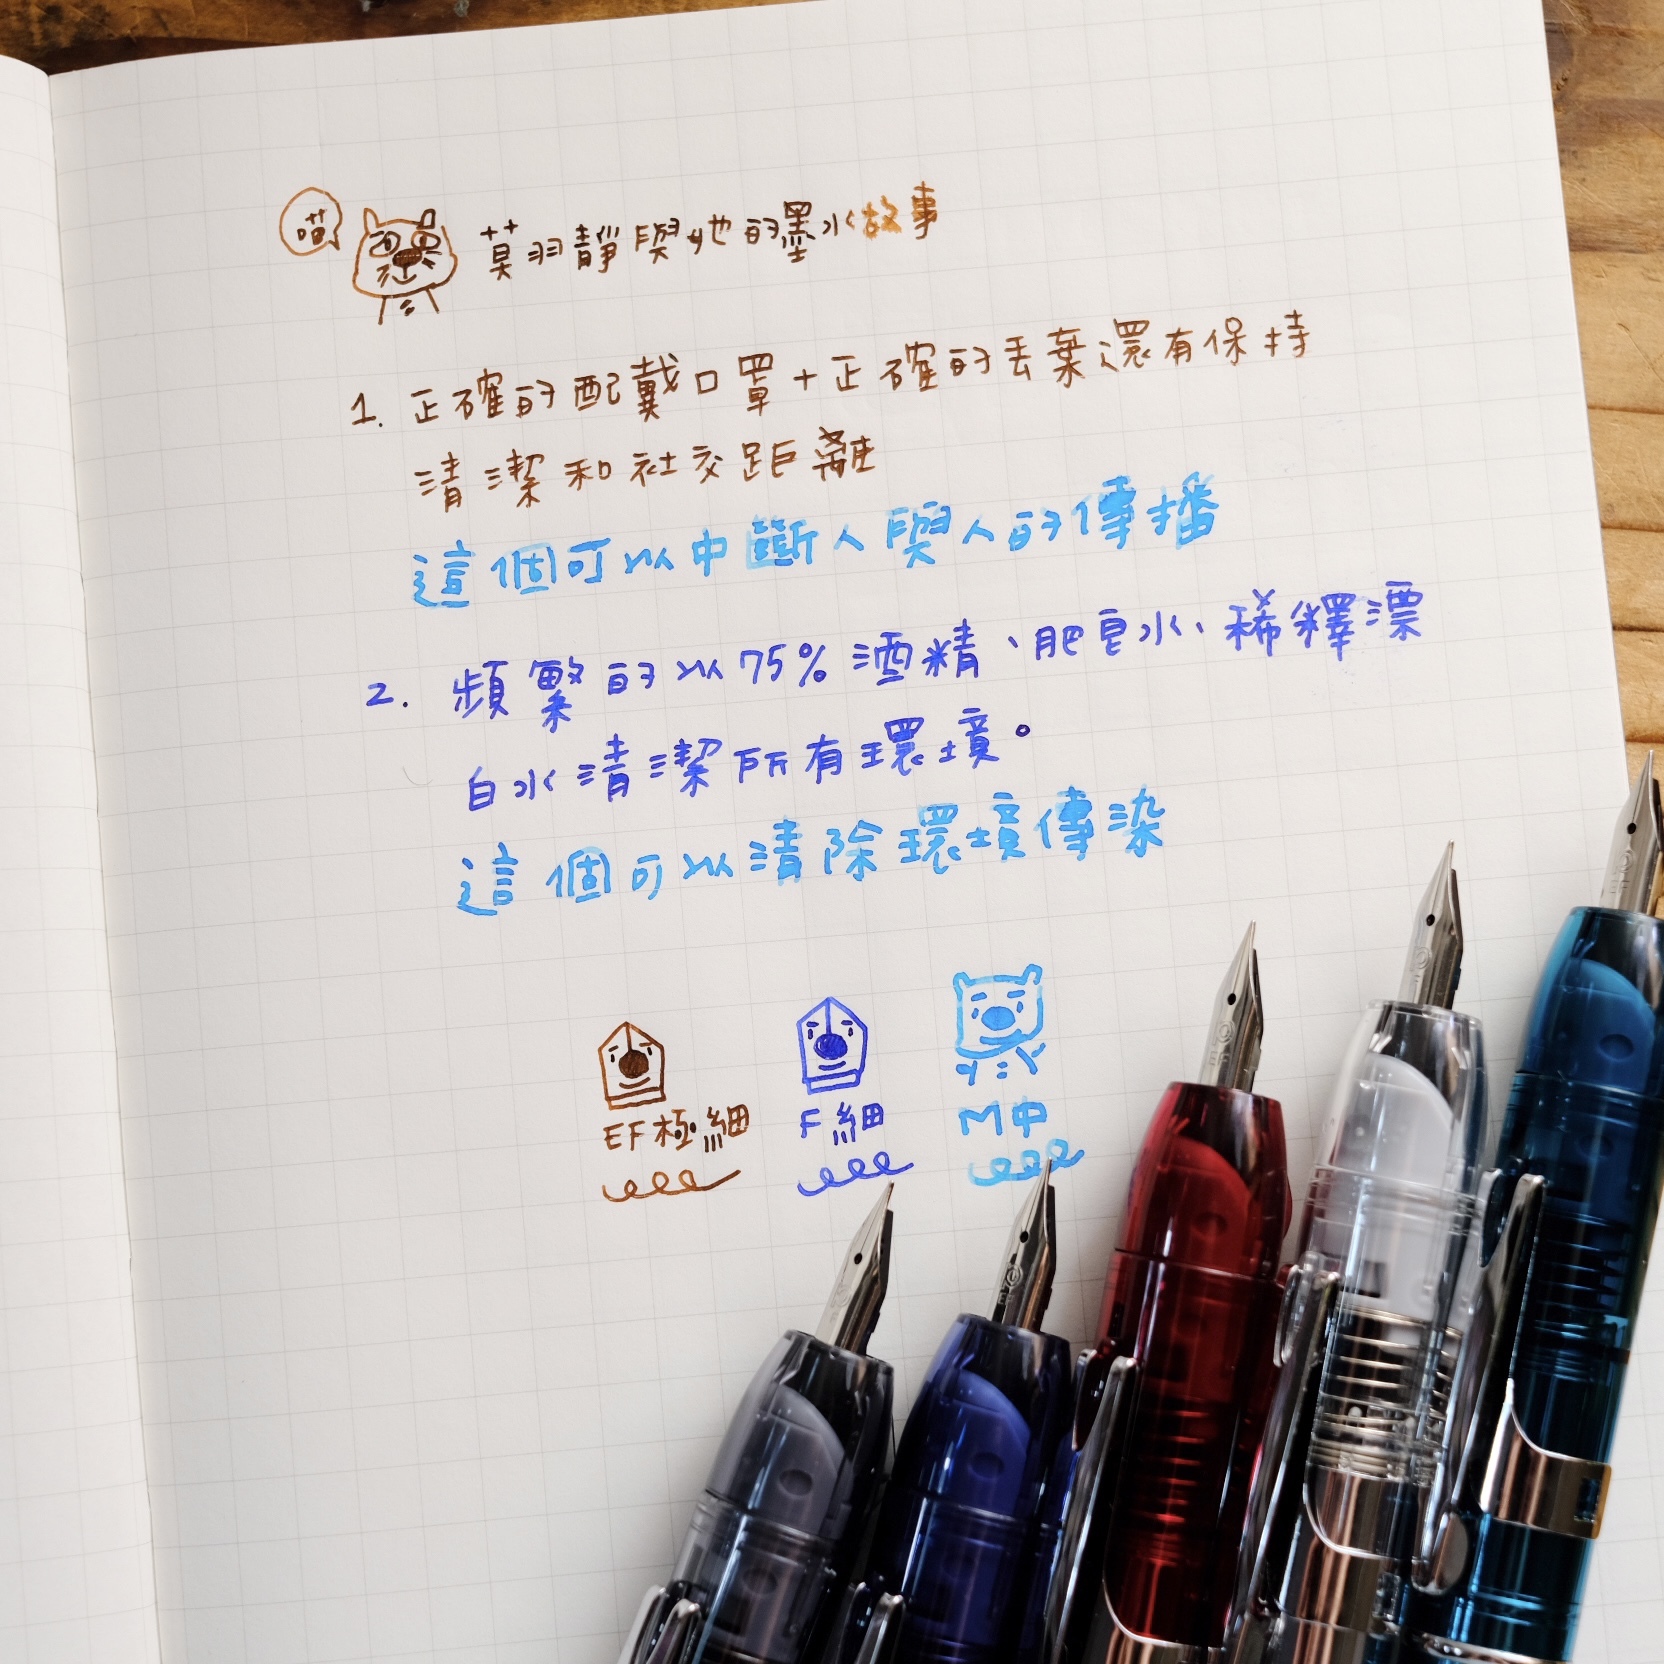 喵
莫羽靜與她的墨水故事
1. 正確的配戴口罩+正確的丟棄還有保持
清潔和社交距離
這個可以中斷人與人的傳播
2. 頻繁的以75%酒精、肥皂水、稀釋漂
白水清潔所有環境。
這個可以清除環境傳染
EF極細
F細
M中